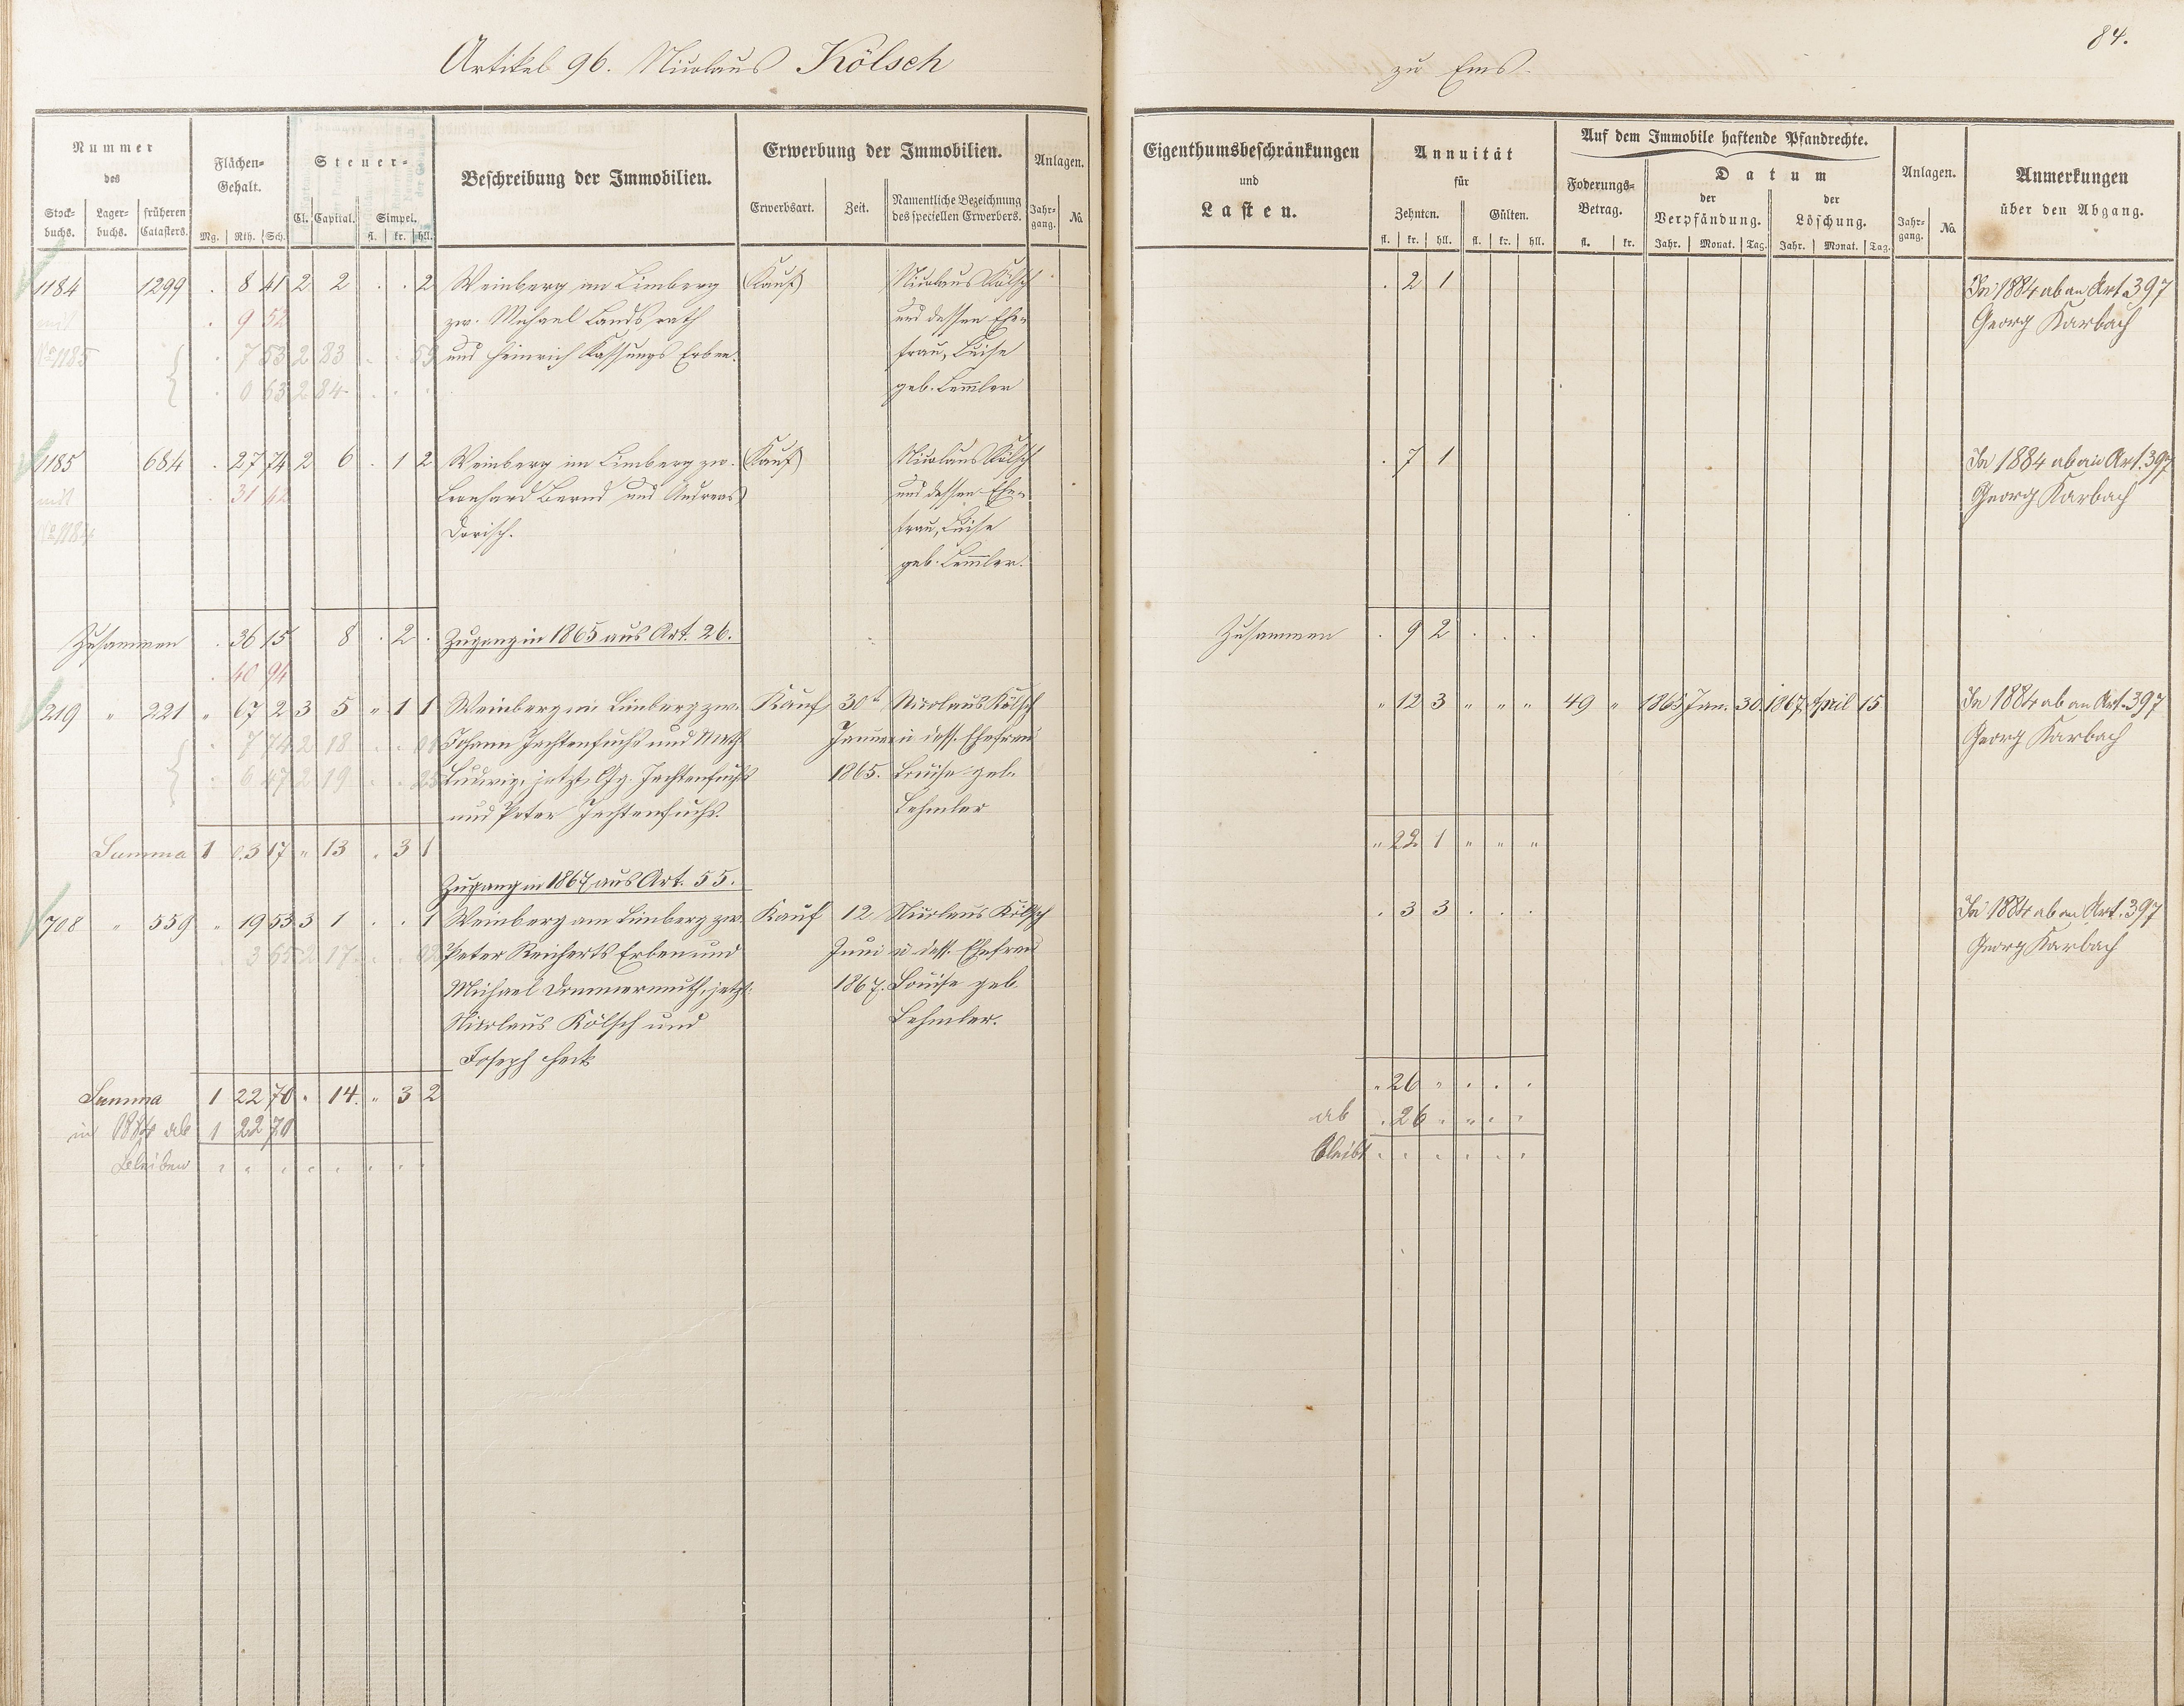 Artikel 96. Nicolaus Kölsch
zu Ems.
84.
Nummer des
Stock-buchs. Lager-buchs. früheren Catasters.
Flächen-Gehalt.
Mg. Rth. Sch.
Steuer-
Cl. Capital. Simpel.
fl. kr. hll.
Beschreibung der Immobilien.
Erwerbung der Immobilien.
Erwerbsart. Zeit. Namentliche Bezeichnung des speciellen Erwerbers.
Anlagen.
Jahr-gang. No.
Eigenthumsbeschränkungen
und
Lasten.
Annuität
für
Zehnten. Gülten.
fl. kr. hll. fl. kr. hll.
Auf dem Immobile haftende Pfandrechte.
Foderungs-Betrag.
fl. kr.
Datum
der Verpfändung. der Löschung.
Jahr. Monat. Tag. Jahr. Monat. Tag.
Anlagen.
Jahr-gang. No.
Anmerkungen
über den Abgang.
1184 1299 . 8 41 2 2 . . 2 Weinberg im Limberg Kauf Nicolaus Kölsch . 2 1 In 1884 ab an Art. 397
mit . 9 52 zw. Michael Landsrath und dessen Ehe- Georg Karbach
No 1185 . 7 53 2 83 . . 59 und Heinrich Erben. frau, Luise
. 0 63 2 84 . . . geb. Lemler
1185 684 . 27 74 2 6 . 1 2 Weinberg im Limberg zw. Kauf Nicolaus Kölsch . 7 1 In 1884 ab an Art. 397
mit . 31 42 Leonhard Bernd und Andreas und dessen Ehe- Georg Karbach
No 1184 Dorisch. frau, Luise
geb. Lemler.
Zusammen . 36 15 8 . 2 . Zugang in 1865 aus Art. 26. Zusammen . 9 2 . . .
. 40 94
219 " 221 " 67 2 3 5 " 1 1 Weinberg im Limberg zw. Kauf 30t Nicolaus Kölsch " 12 3 " " " 49 " 1865 Jan. 30. 1867 April 15 In 1884 ab an Art. 397
. 7 74 2 18 . . Johann Jechtenfuchs und Math. Januar u dess. Ehefrau Georg Karbach
. 6 47 2 19 . . 25 Ludwig, jetzt Gg. Jechtenfuchs 1865. Louise geb.
und Peter Jechtenfuchs. Lehmler
Summa 1 " 3 17 " 13 . 3 1 " 22 1 " " "
Zugang in 1867 aus Art. 55.
708 " 559 " 19 53 3 1 . . 1 Weinberg am Limberg zw. Kauf 12 Nicolaus Kölsch . 3 3 . . . In 1884 ab an Art. 397
. 3 65 2 17 . . 02 Peter Reicherts Erben und Juni u dess. Ehefrau Georg Karbach
Michael Dommermuth, jetzt: 1867. Louise geb.
Nicolaus Kölsch und Lehmler.
Joseph Heck
Summa 1 22 70 " 14. " 3 2 " 26 " . . .
in 1884 ab 1 22 70 ab . 26 . " . .
Bleiben " " " " " " " " Bleibt . . . . . .